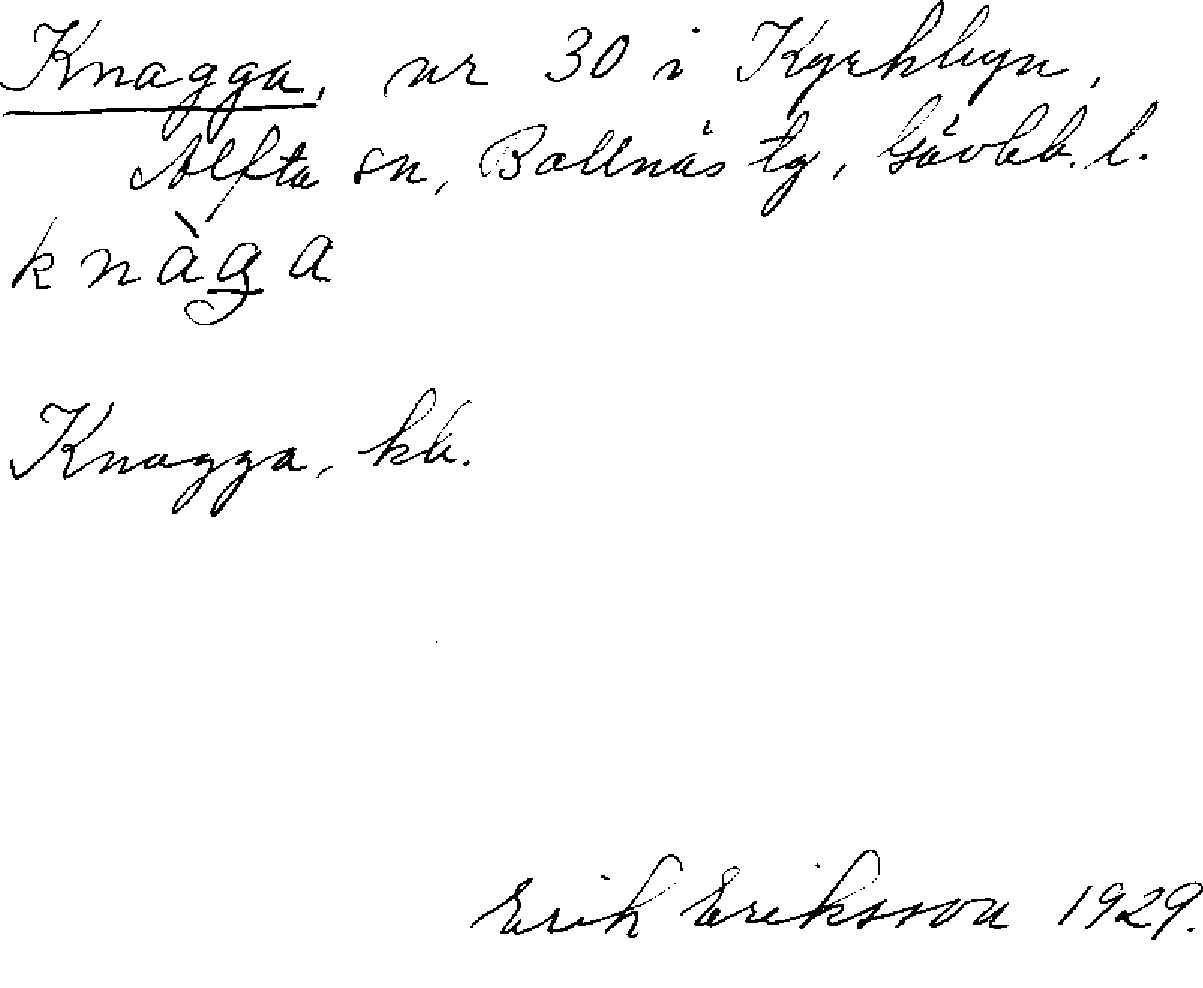 Knagga, nr 30 i Kyrkbyn,
Alfta sn, Bollnäs tg, Gävleb. l.
knàga
Knagga, kb.
Erik Eriksson 1929.